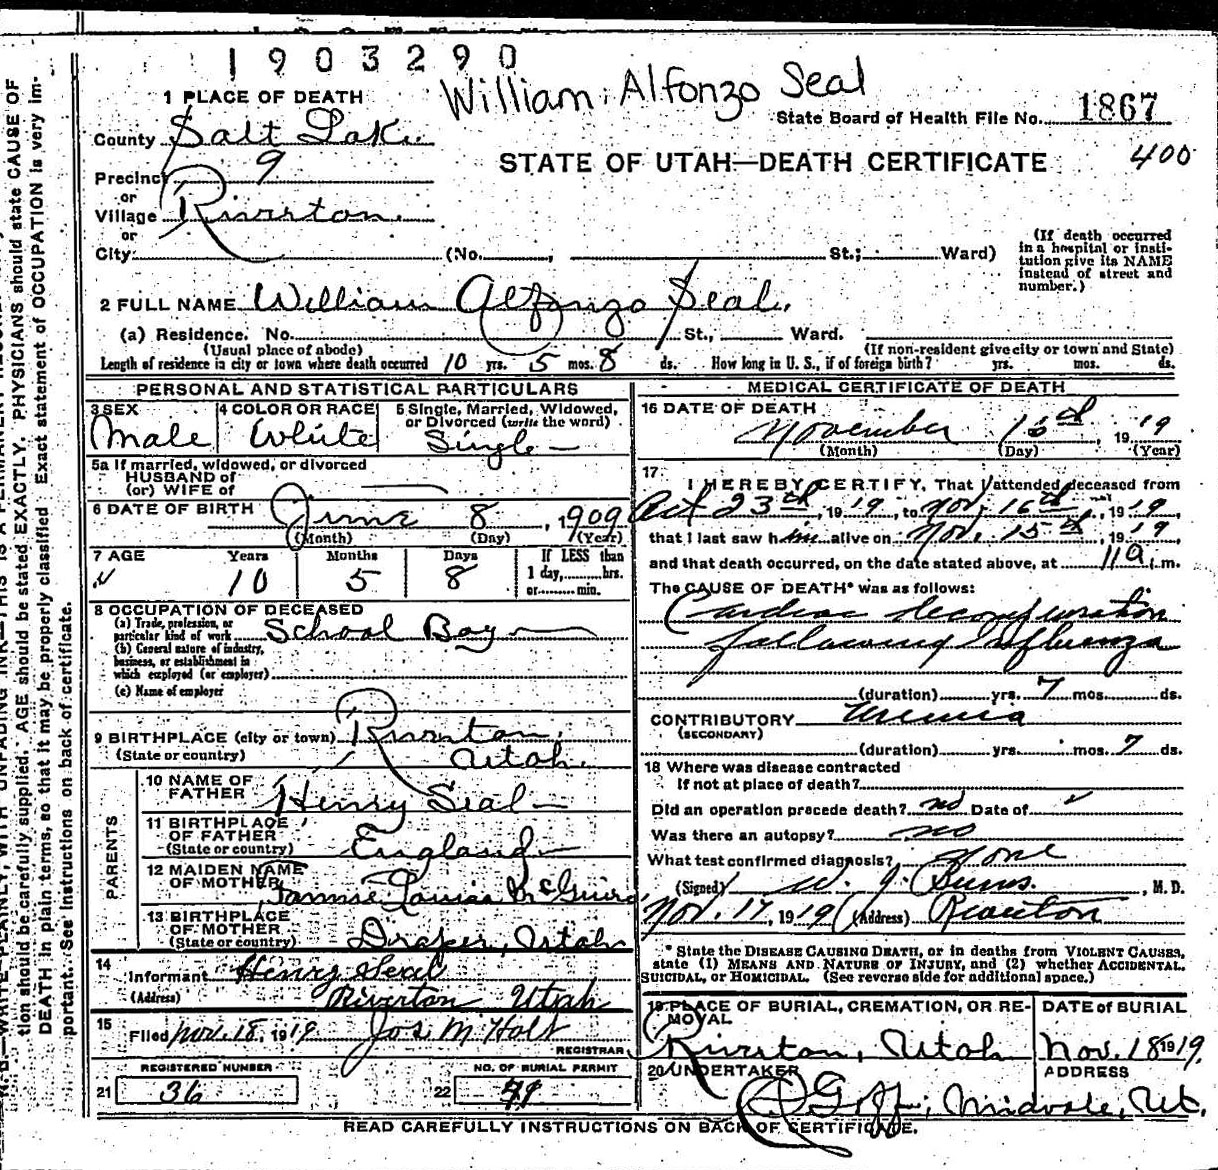 1903290
William Alfonzo Seal
1 PLACE OF DEATH
State Board of Health File No. 1867
County Salt Lake
STATE OF UTAH—DEATH CERTIFICATE 400
Precinct 9
or
Village Riverton
or
City (No. St.; Ward)
(If death occurred in a hospital or institution give its NAME instead of street and number.)
2 FULL NAME William Alfonzo Seal.
(a) Residence. No. St., Ward.
(Usual place of abode) (If non-resident give city or town and State)
Length of residence in city or town where death occurred 10 yrs. 5 mos. 8 ds. How long in U. S., if of foreign birth? yrs. mos. ds.
PERSONAL AND STATISTICAL PARTICULARS
3 SEX Male
4 COLOR OR RACE White
5 Single, Married, Widowed, or Divorced (write the word) Single
5a If married, widowed, or divorced
HUSBAND of
(or) WIFE of
6 DATE OF BIRTH June 8, 1909
(Month) (Day) (Year)
7 AGE Years Months Days If LESS than
10 5 8 1 day, hrs.
or min.
8 OCCUPATION OF DECEASED
(a) Trade, profession, or
particular kind of work School Boy
(b) General nature of industry,
business, or establishment in
which employed (or employer)
(c) Name of employer
9 BIRTHPLACE (city or town) Riverton,
(State or country) Utah.
PARENTS
10 NAME OF FATHER Henry Seal
11 BIRTHPLACE OF FATHER
(State or country) England
12 MAIDEN NAME OF MOTHER Fannie Louisa McGuire
13 BIRTHPLACE OF MOTHER
(State or country) Draper, Utah
14
Informant Henry Seal
(Address) Riverton Utah
15
Filed Nov. 18, 1919 Jos M Holt
REGISTRAR
REGISTERED NUMBER
21 36
NO. OF BURIAL PERMIT
22
MEDICAL CERTIFICATE OF DEATH
16 DATE OF DEATH
November , 1919
(Month) (Day) (Year)
17
I HEREBY CERTIFY, That I attended deceased from
Oct 23rd, 1919, to Nov. 16th, 1919,
that I last saw him alive on Nov. 15th, 1919,
and that death occurred, on the date stated above, at 11 a.m.
The CAUSE OF DEATH* was as follows:
Cardiac
following Influenza
(duration) yrs. 7 mos. ds.
CONTRIBUTORY Uremia
(SECONDARY)
(duration) yrs. mos. 7 ds.
18 Where was disease contracted
If not at place of death?
Did an operation precede death? no Date of
Was there an autopsy? no
What test confirmed diagnosis? None
(Signed) W. J. Burns. , M. D.
Nov. 17, 1919 (Address) Riverton
* State the DISEASE CAUSING DEATH, or in deaths from VIOLENT CAUSES,
state (1) MEANS AND NATURE OF INJURY, and (2) whether ACCIDENTAL,
SUICIDAL, or HOMICIDAL. (See reverse side for additional space.)
19 PLACE OF BURIAL, CREMATION, OR REMOVAL
Riverton, Utah
DATE of BURIAL
Nov. 18 1919.
20 UNDERTAKER
Goff,
ADDRESS
Midvale, Ut.
READ CAREFULLY INSTRUCTIONS ON BACK OF CERTIFICATE.
tion should be carefully supplied. AGE should be stated EXACTLY. PHYSICIANS should state CAUSE OF
DEATH in plain terms, so that it may be properly classified. Exact statement of OCCUPATION is very im-
portant. See instructions on back of certificate.